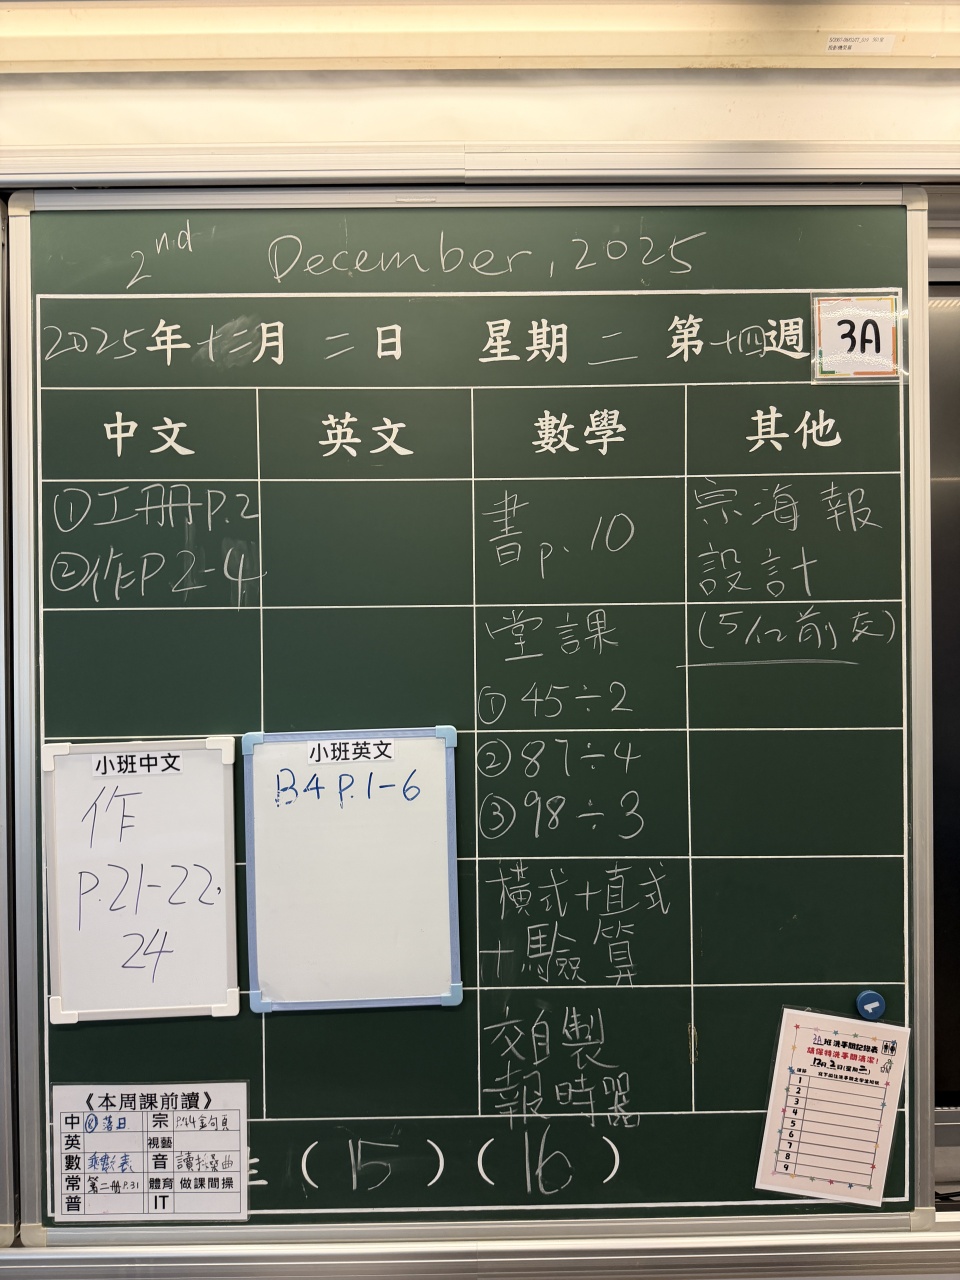 2nd December, 2025
2025年十二月二日 星期二 第十四週
3A
中文 英文 數學 其他
①工冊P.2
②作P2-4
書p.10
堂課
①45÷2
②87÷4
③98÷3
橫式+直式
+驗算
交自製
報時器
宗海報
設計
(5/12前交)
小班中文
作
P.21-22,
24
小班英文
B4 P.1-6
《本周課前讀》
中 落日 宗 P.44金句頁
英 視藝
數 乘數表 音
常 第二冊P.31 體育 做課間操
普 IT
(15)(16)
3A班洗手間記錄表
請保持洗手間清潔!
12月2日(星期二)
1
2
3
4
5
6
7
8
9